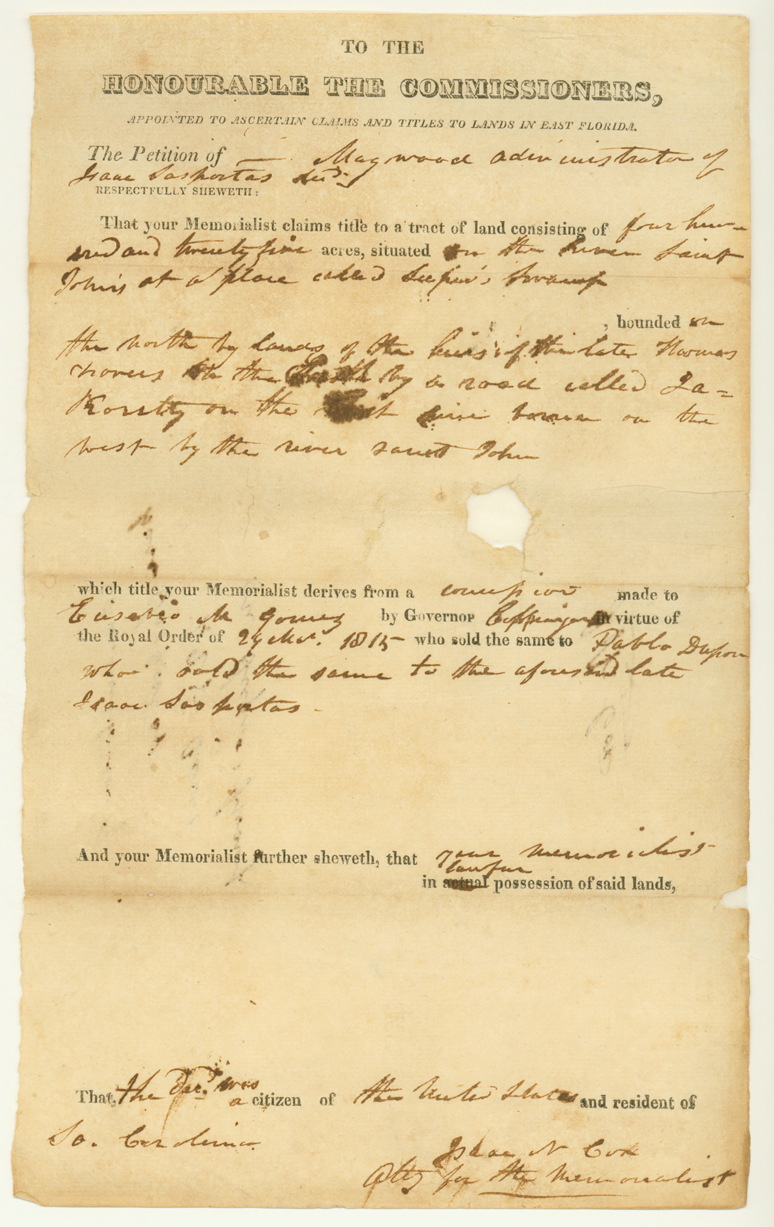 TO THE
HONOURABLE THE COMMISSIONERS,
APPOINTED TO ASCERTAIN CLAIMS AND TITLES TO LANDS IN EAST FLORIDA.
The Petition of — Magwood administrator of
Isaac Sasportas Decd.
RESPECTFULLY SHEWETH:
That your Memorialist claims title to a tract of land consisting of four hun=
dred and twenty five acres, situated on the River Saint
John's at a place called Swamp
, bounded on
the north by lands of the heirs of the late Thomas
Travers the by a road called
on the pine barren on the
west by the river saint John
which title your Memorialist derives from a concession made to
Eusebio M Gomez by Governor Coppinger in virtue of
the Royal Order of 29 Mar. 1815 who sold the same to Pablo Dupon
who sold the same to the aforesaid late
Isaac Sasportas -
And your Memorialist further sheweth, that your memorialist
in possession of said lands,
That, the Decd. was a citizen of the United States and resident of
So. Carolina
Isaac N Cox
Atty for the Memorialist